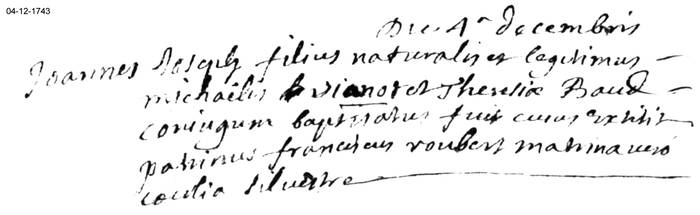 04-12-1743
Die 4ª decembris
Joannes Joseph filius naturalis et legitimus
michaëlis vianot et Theresiæ Baud
coniugum baptisatus fuit cuius extitit
patrinus franciscus roubert matrina vero
silvestre